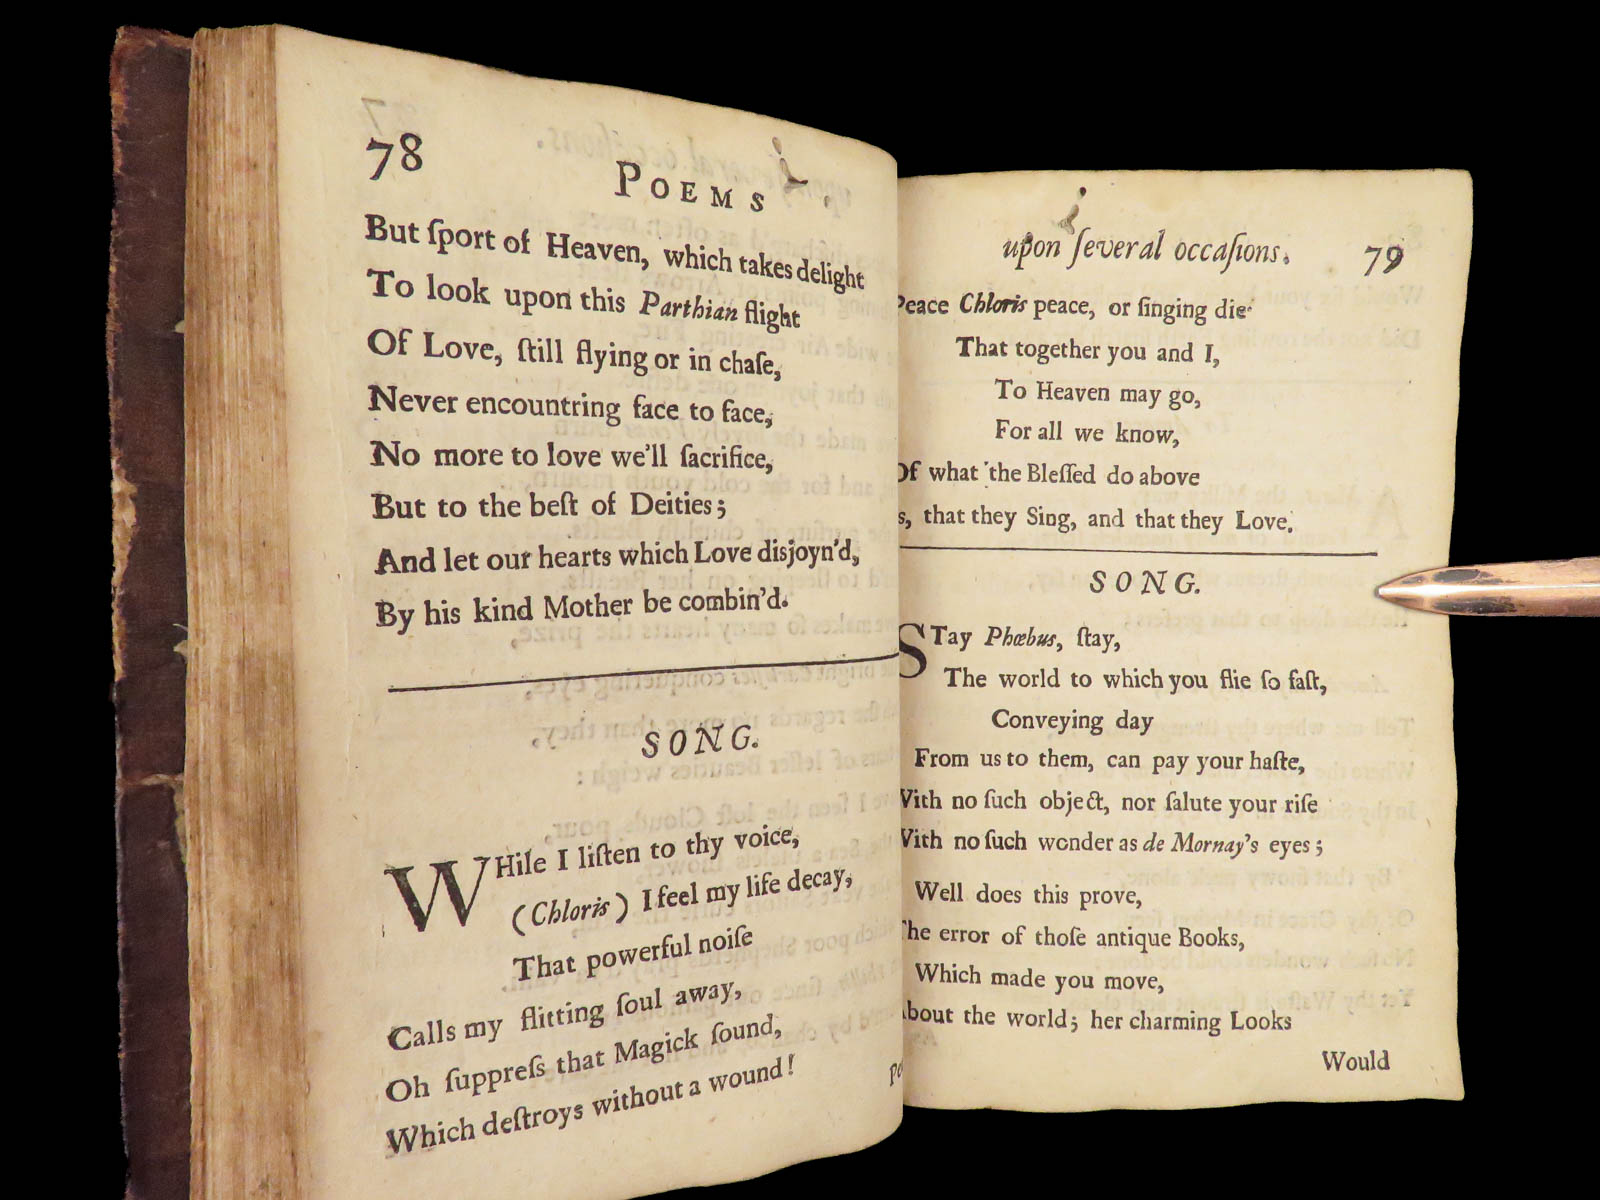 78
POEMS
But ſport of Heaven, which takes delight
To look upon this Parthian flight
Of Love, ſtill flying or in chaſe,
Never encountring face to face,
No more to love we'll ſacrifice,
But to the beſt of Deities;
And let our hearts which Love disjoyn'd,
By his kind Mother be combin'd.
SONG.
WHile I liſten to thy voice,
(Chloris) I feel my life decay,
That powerful noiſe
Calls my flitting ſoul away,
Oh ſuppreſs that Magick ſound,
Which deſtroys without a wound!
upon ſeveral occaſions. 79
Peace Chloris peace, or ſinging die
That together you and I,
To Heaven may go,
For all we know,
Of what the Bleſſed do above
, that they Sing, and that they Love.
SONG.
STay Phœbus, ſtay,
The world to which you flie ſo faſt,
Conveying day
From us to them, can pay your haſte,
With no ſuch object, nor ſalute your riſe
With no ſuch wonder as de Mornay's eyes;
Well does this prove,
The error of thoſe antique Books,
Which made you move,
About the world; her charming Looks
Would